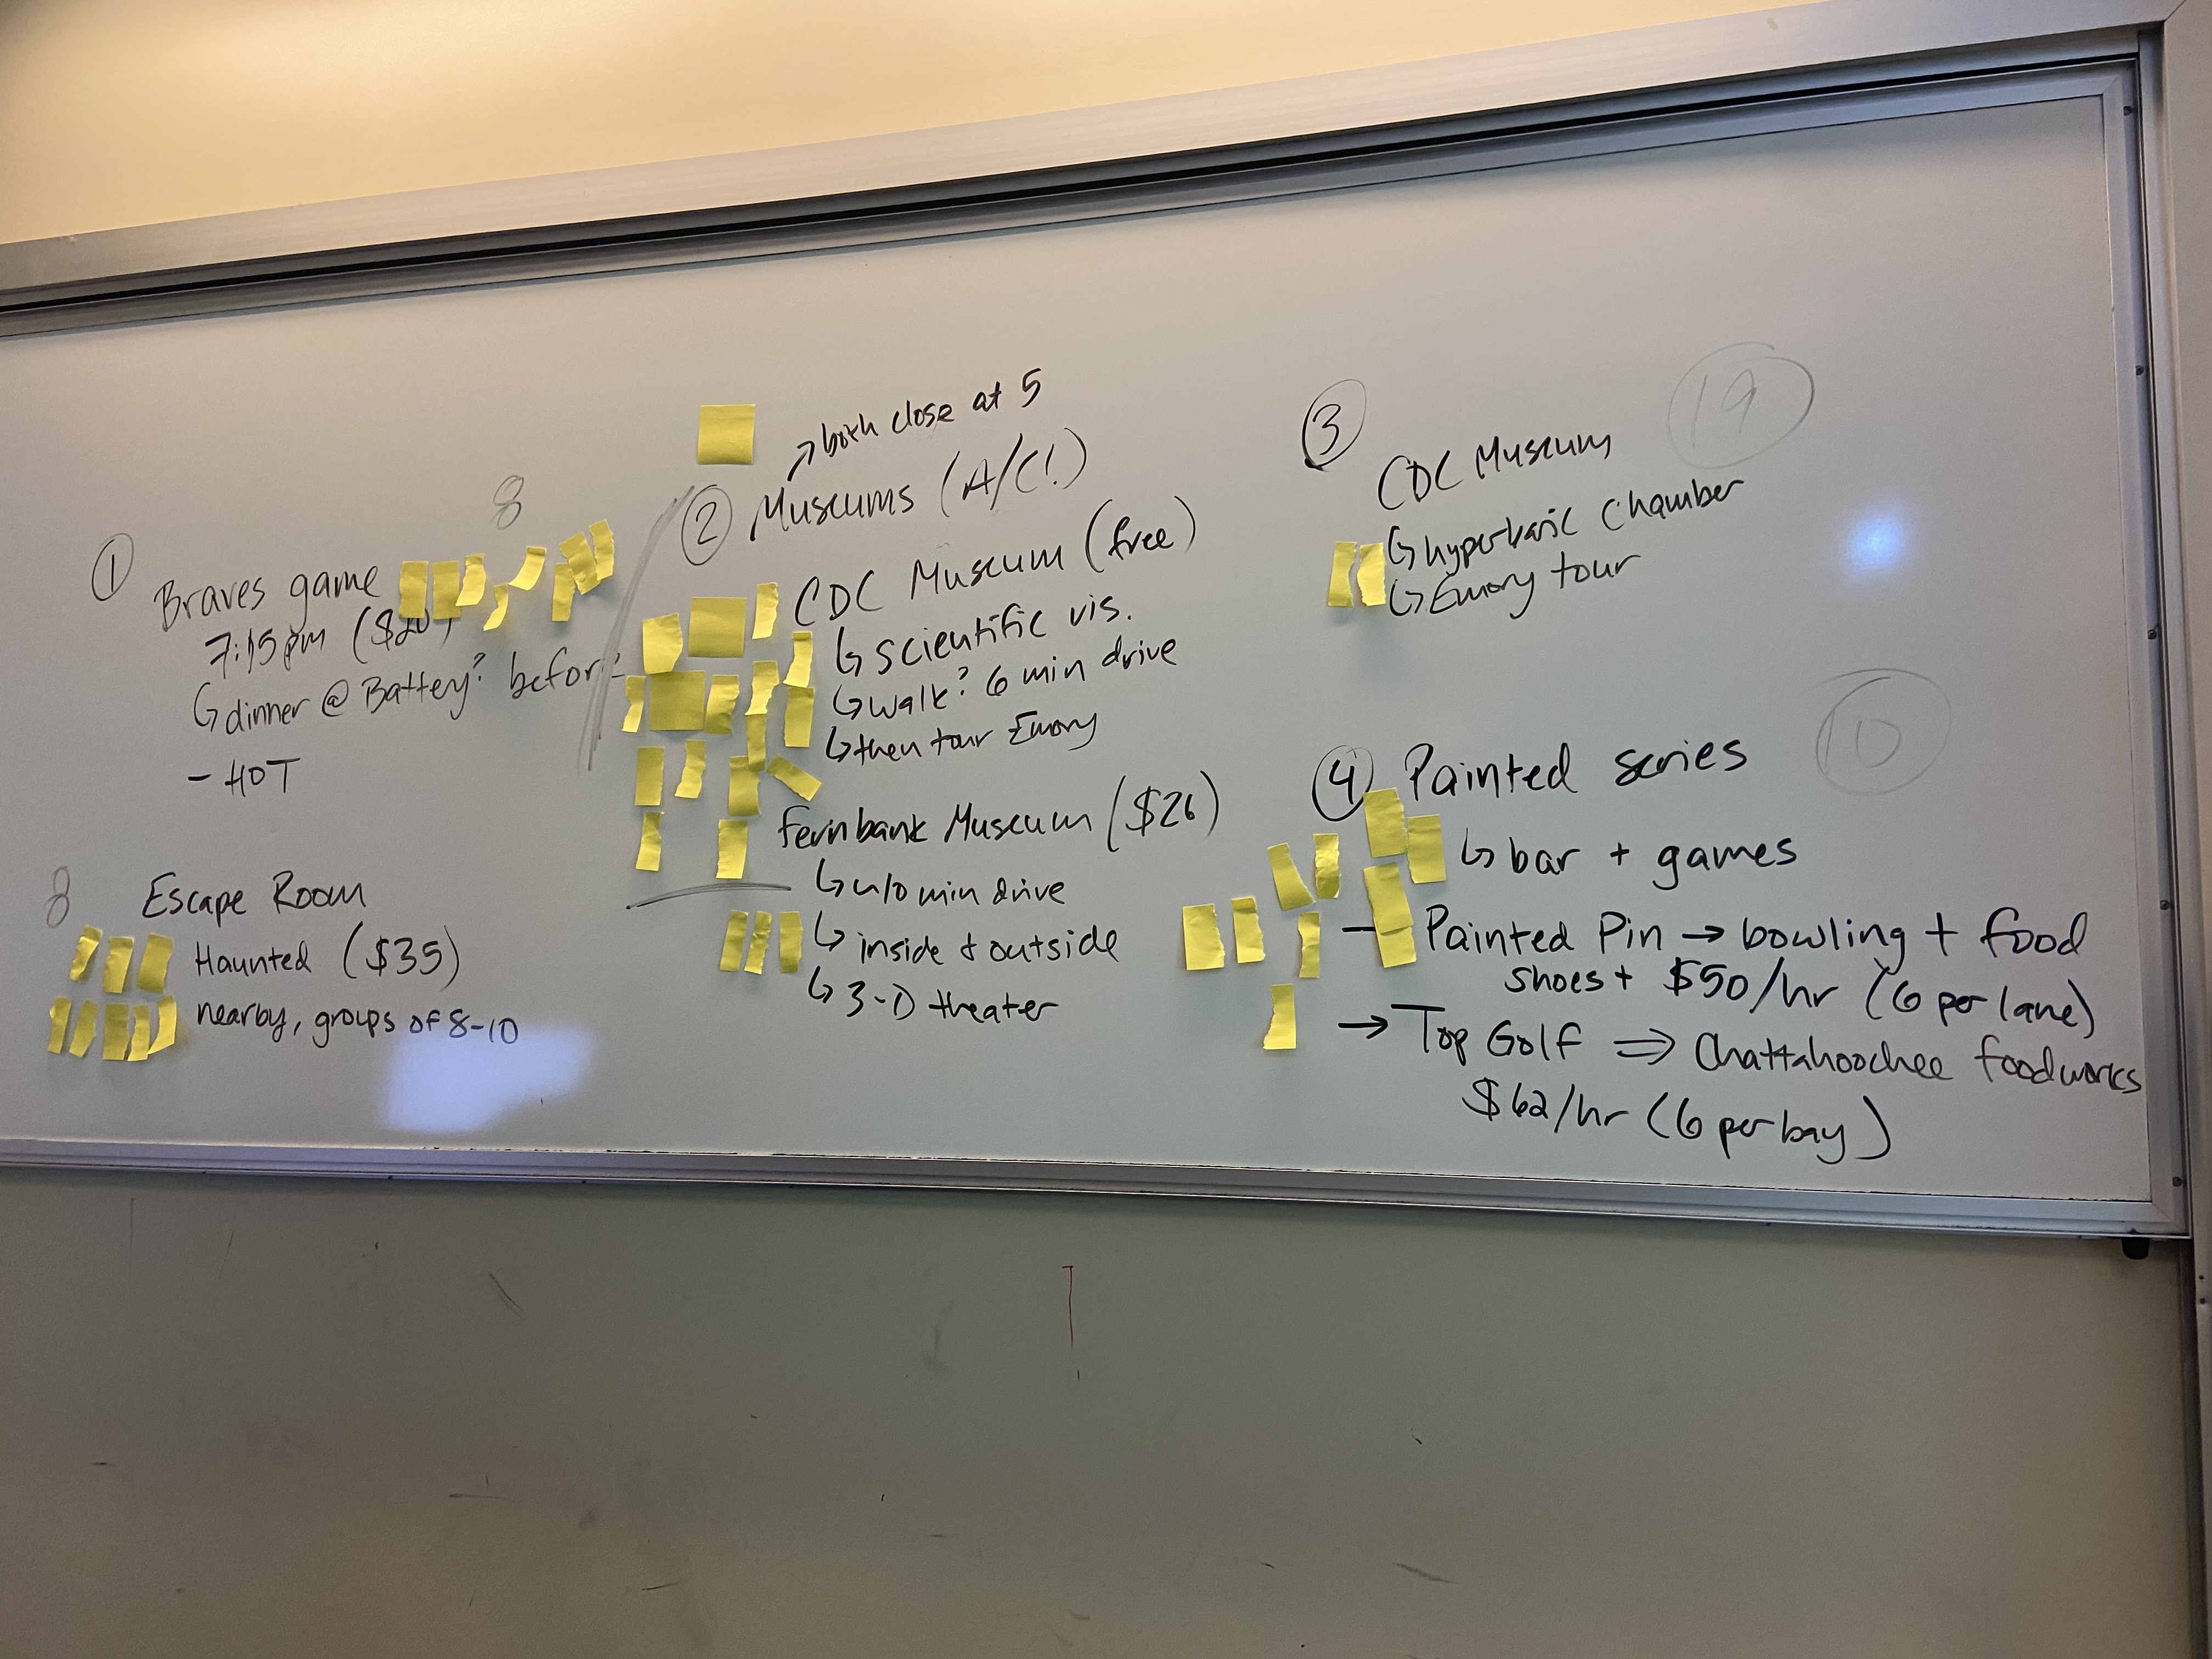 8
①
Braves game
7:15 pm ($20)
↳ dinner @ Battery? before
- HOT
8
Escape Room
Haunted ($35)
nearby, groups of 8-10
↗ both close at 5
② Museums (A/C!)
CDC Museum (free)
↳ scientific vis.
↳ walk? 6 min drive
↳ then tour Emory
Fernbank Museum ($26)
↳ ~10 min drive
↳ inside & outside
↳ 3-D theater
19
③
CDC Museum
↳ hyperbaric Chamber
↳ Emory tour
10
④ Painted series
↳ bar + games
- Painted Pin → bowling + food
shoes + $50/hr (6 per lane)
→ Top Golf ⇒ Chattahoochee foodworks
$62/hr (6 per bay)